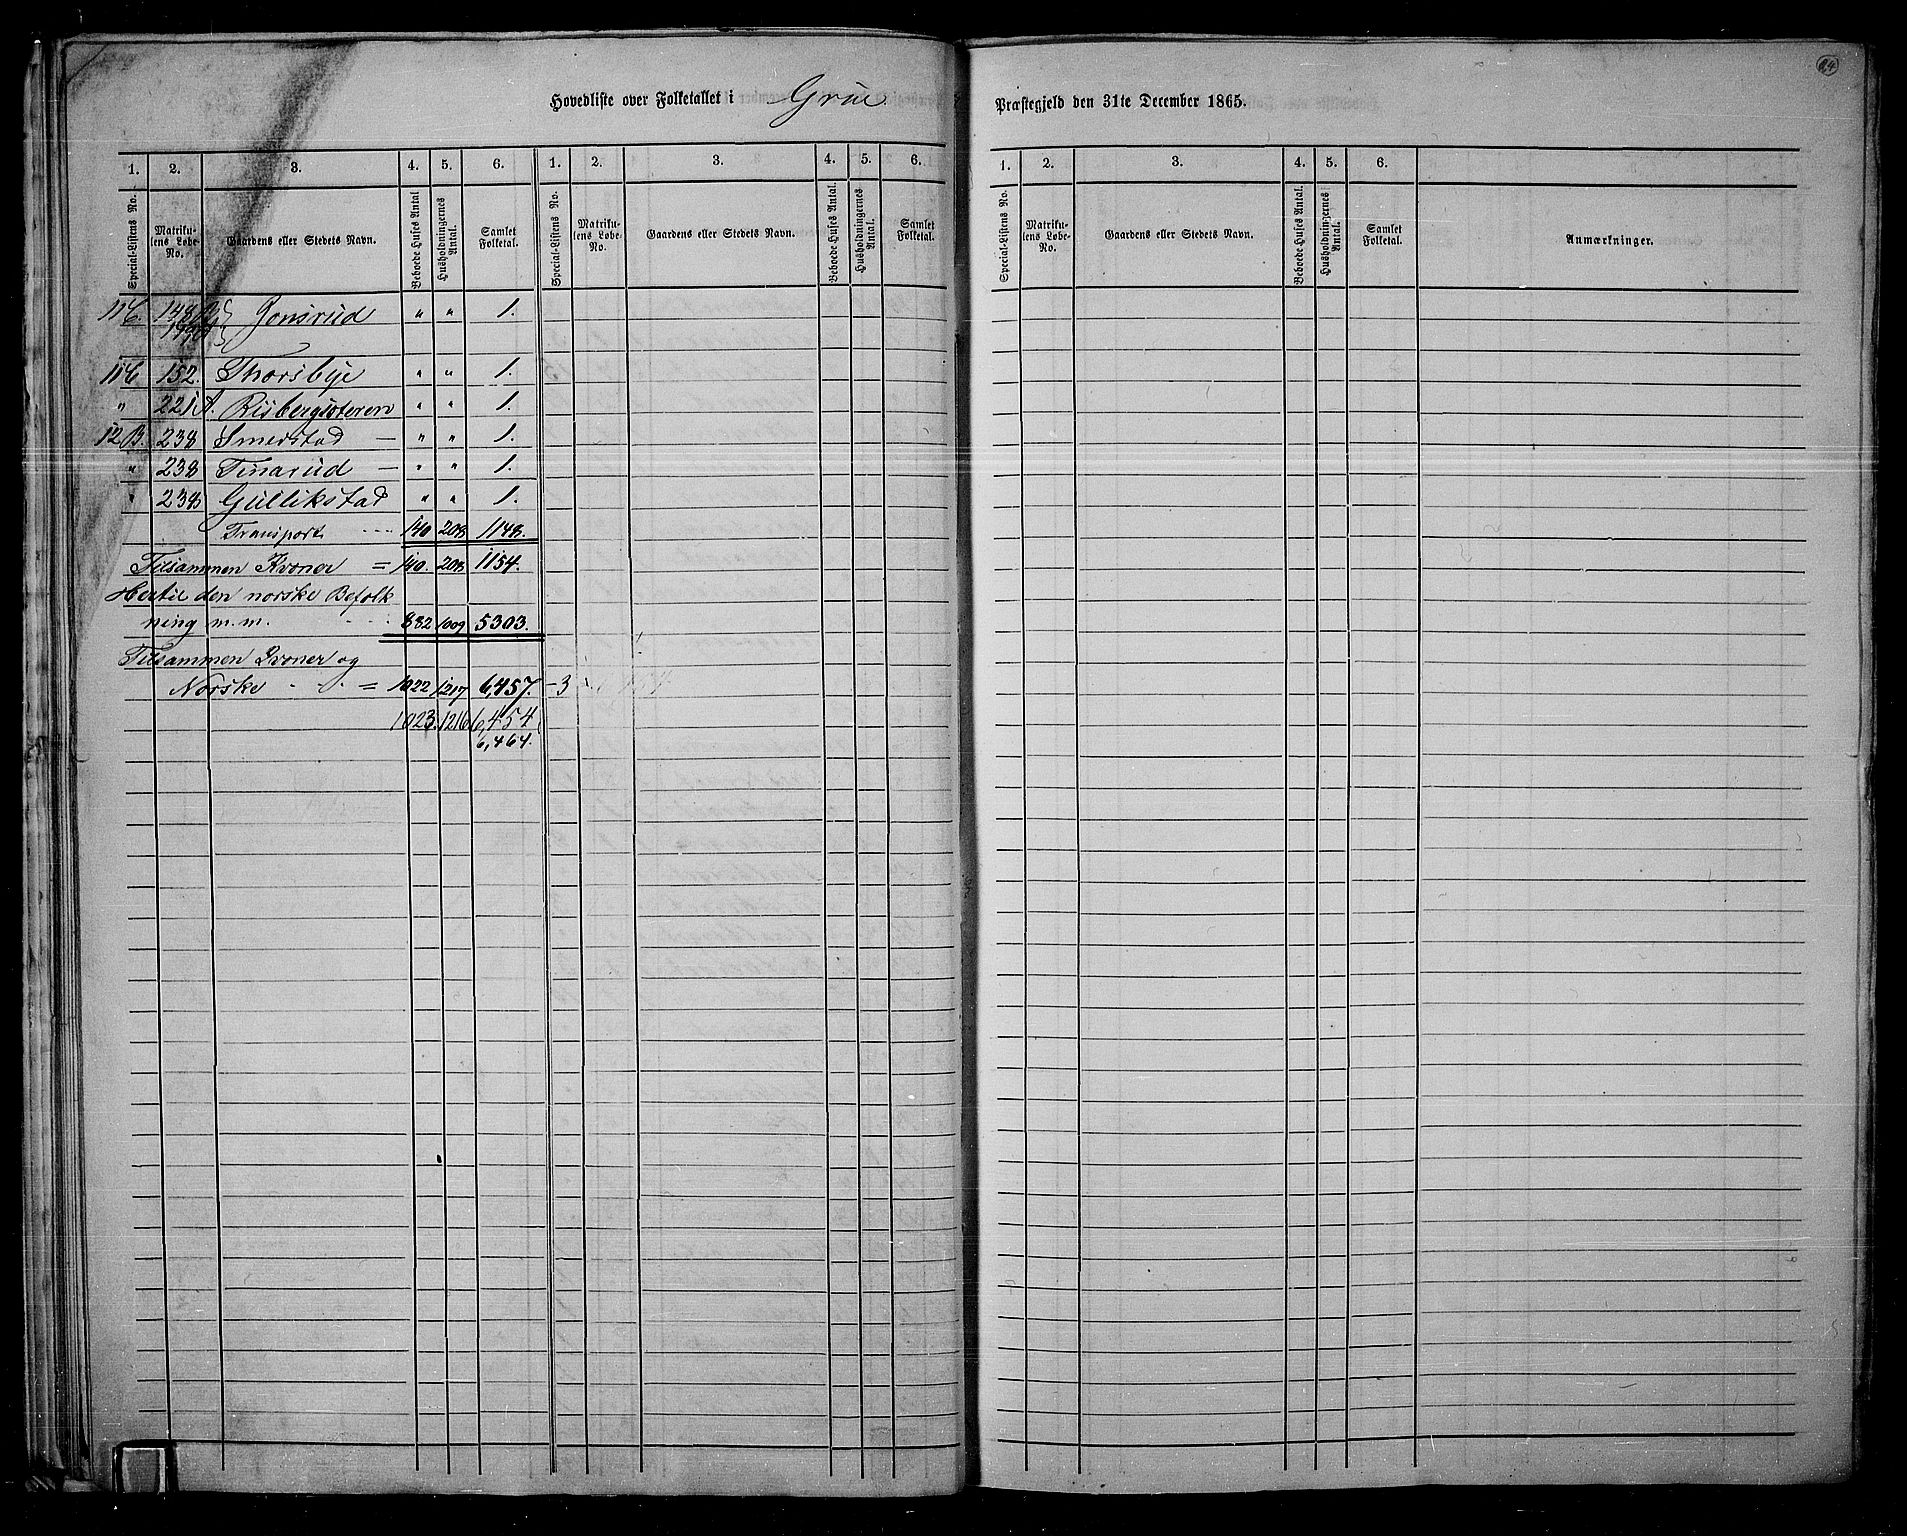 Hovedliste over Folketallet i Grue Præstegjeld den 31te December 1865.
24
1. 2. 3. 4. 5. 6. 1. 2. 3. 4. 5. 6.
Special-Listens No. Matrikulens Løbe-No. Gaardens eller Stedets Navn. Beboede Huses Antal. Husholdningernes Antal. Samlet Folketal. Special-Listens No. Matrikulens Løbe-No. Gaardens eller Stedets Navn. Beboede Huses Antal. Husholdningernes Antal. Samlet Folketal.
11C. 148 Jonsrud " " 1.
11C 152. Thorsbye " " 1.
" 221A. Riisbergsæteren " " 1.
12B. 238 Smerstad — " " 1.
" 238 Tinarud — " " 1.
" 238 Gullikstad " " 1.
Transport 140 208 1148.
Tilsammen Kvæner = 140. 208 1154.
Hertil den norske Befolk
ning m.m. 882 1009 5303.
Tilsammen Kvæner og
Norske = 1022 1217 6,457. -3
1023. 1216 6,454
6,464.
1. 2. 3. 4. 5. 6.
Special-Listens No. Matrikulens Løbe-No. Gaardens eller Stedets Navn. Beboede Huses Antal. Husholdningernes Antal. Samlet Folketal. Anmærkninger.